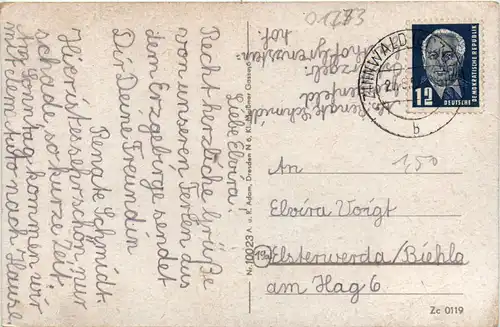 01273
Liebe Elvira!
Recht herzliche Grüße
von unseren Ferien aus
dem Erzgebirge sendet
Dir Deine Freundin
Renate Schmidt.
Hier ist es sehr schön nur
schade so kurze Zeit.
Am Sonntag kommen wir
mit dem Auto nach Hause
Renate Schmidt
Erzgeb.
Nr. 10023 A. u. R. Adam, Dresden N 6, Kl. Meißner Gasse
ZINNWALD
b
12
DEUTSCHE
DEMOKRATISCHE REPUBLIK
1,50
An
Elvira Voigt
(19a) Elsterwerda/Biehla
am Hag 6
Zc 0119